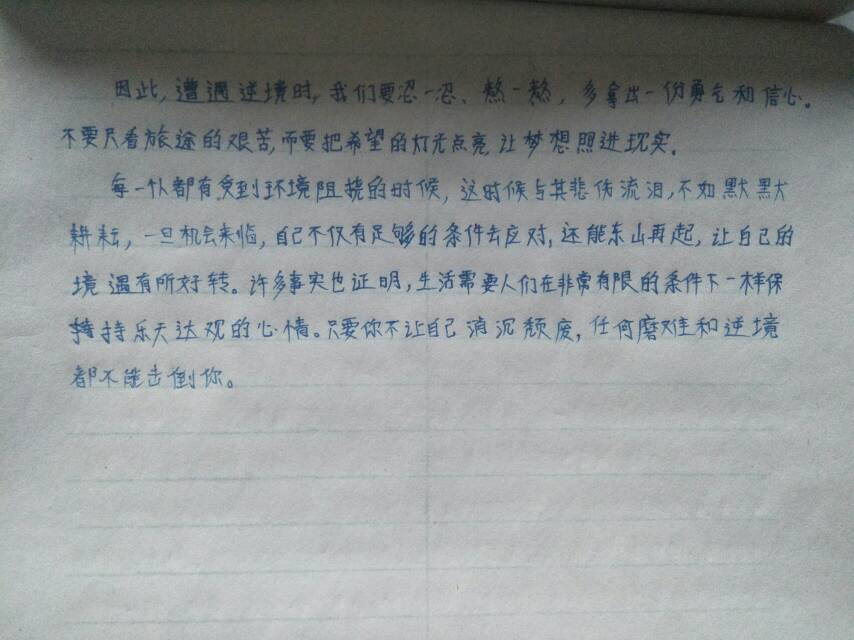 因此,遭遇逆境时,我们要忍一忍、熬一熬,多拿出一份勇气和信心。
不要只看旅途的艰苦,而要把希望的灯光点亮,让梦想照进现实.
每一个都有受到环境阻挠的时候,这时候与其悲伤流泪,不如默默
耕耘,一旦机会来临,自己不仅有足够的条件去应对,还能东山再起,让自己的
境遇有所好转。许多事实也证明,生活需要人们在非常有限的条件下一样保
持乐天达观的心情。只要你不让自己消沉颓废,任何磨难和逆境
都不能击倒你。